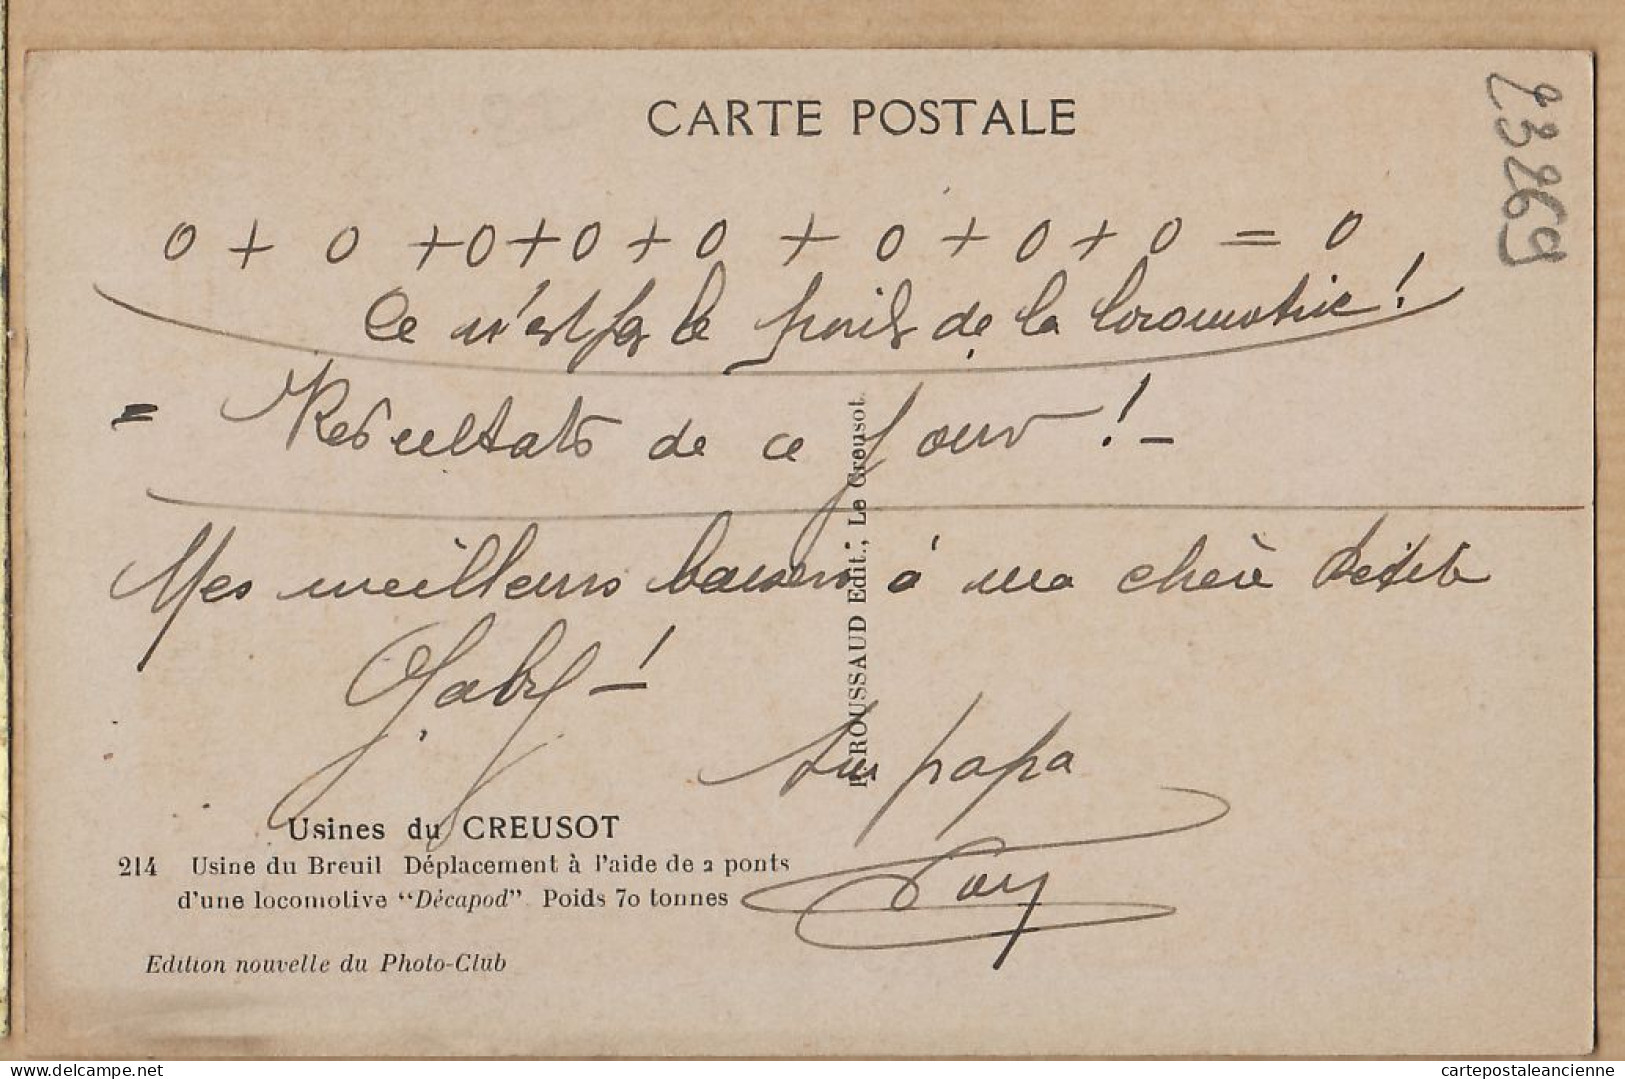 CARTE POSTALE
23269
0 + 0 + 0 + 0 + 0 + 0 + 0 + 0 = 0
Ce n'est pas le poids de la locomotive!
= Resultats de ce jour! -
Mes meilleurs baisers à ma chère petite
Gaby - !
papa
Usines du CREUSOT
214 Usine du Breuil Déplacement à l'aide de 2 ponts
d'une locomotive "Décapod" Poids 70 tonnes
Edition nouvelle du Photo-Club
ROUSSAUD Edit., Le Creusot.
delcampe.net
cartepostaleancienne